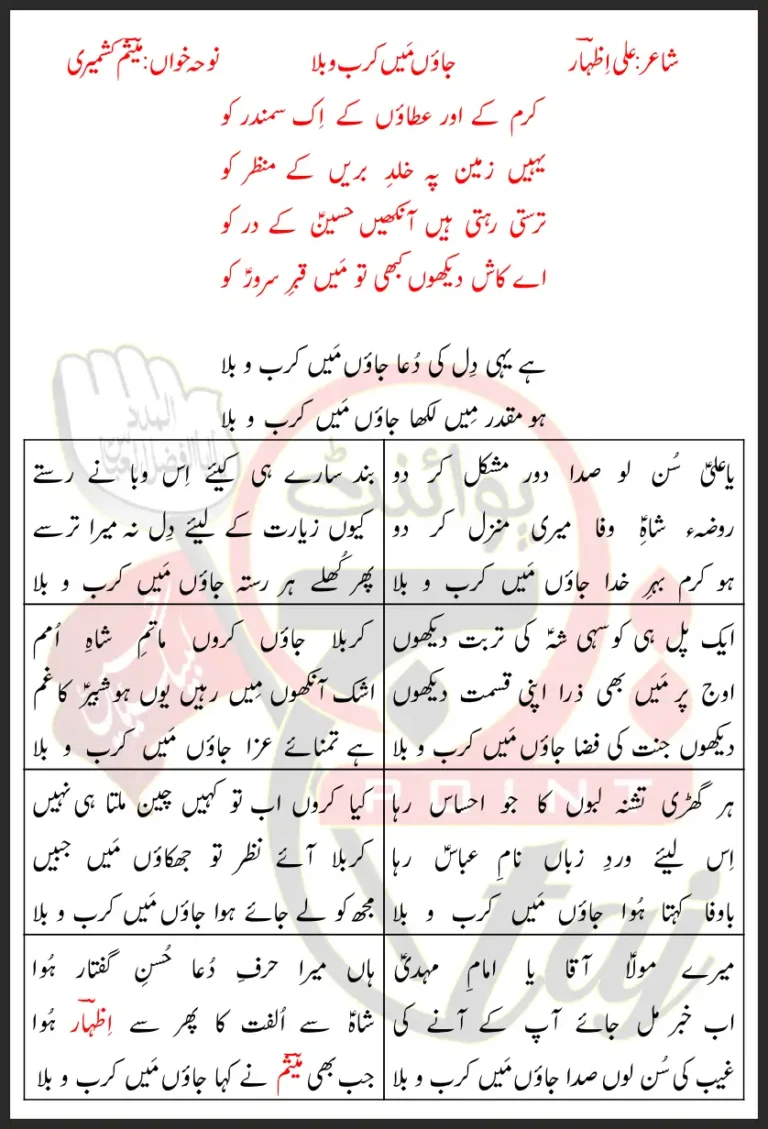 شاعر: علی اِظہارؔ
جاؤں مَیں کرب و بلا
نوحہ خواں: میثمؔ کشمیری
کرم کے اور عطاؤں کے اِک سمندر کو
یہیں زمین پہ خلدِ بریں کے منظر کو
ترستی رہتی ہیں آنکھیں حسینؑ کے در کو
اے کاش دیکھوں کبھی تو مَیں قبرِ سرورؑ کو
ہے یہی دِل کی دُعا جاؤں مَیں کرب و بلا
ہو مقدر مِیں لکھا جاؤں مَیں کرب و بلا
یاعلیؑ سُن لو صدا دور مشکل کر دو
روضہء شاہِؑ وفا میری منزل کر دو
ہو کرم بہرِ خدا جاؤں مَیں کرب و بلا
بند سارے ہی کیئے اِس وبا نے رستے
کیوں زیارت کے لیئے دِل نہ میرا ترسے
پھر کُھلے ہر رستہ جاؤں مَیں کرب و بلا
ایک پل ہی کو سہی شہؑ کی تربت دیکھوں
اوج پر مَیں بھی ذرا اپنی قسمت دیکھوں
دیکھوں جنت کی فضا جاؤں مَیں کرب و بلا
کربلا جاؤں کروں ماتمِ شاہِ اُمم
اشک آنکھوں مِیں رہیں یوں ہو شبیرؑ کا غم
ہے تمنائے عزا جاؤں مَیں کرب و بلا
ہر گھڑی تشنہ لبوں کا جو احساس رہا
اِس لیئے وردِ زباں نامِ عباسؑ رہا
باوفا کہتا ہُوا جاؤں مَیں کرب و بلا
کیا کروں اب تو کہیں چین ملتا ہی نہیں
کربلا آئے نظر تو جھکاؤں مَیں جبیں
مجھ کو لے جائے ہوا جاؤں مَیں کرب و بلا
میرے مولاؑ آقا یا امامِ مہدیؑ
اب خبر مل جائے آپ کے آنے کی
غیب کی سُن لوں صدا جاؤں مَیں کرب و بلا
ہاں میرا حرفِ دُعا حُسنِ گفتار ہُوا
شاہؑ سے اُلفت کا پھر سے اِظہارؔ ہُوا
جب بھی میثمؔ نے کہا جاؤں مَیں کرب و بلا
پوائنٹ
POINT
taj